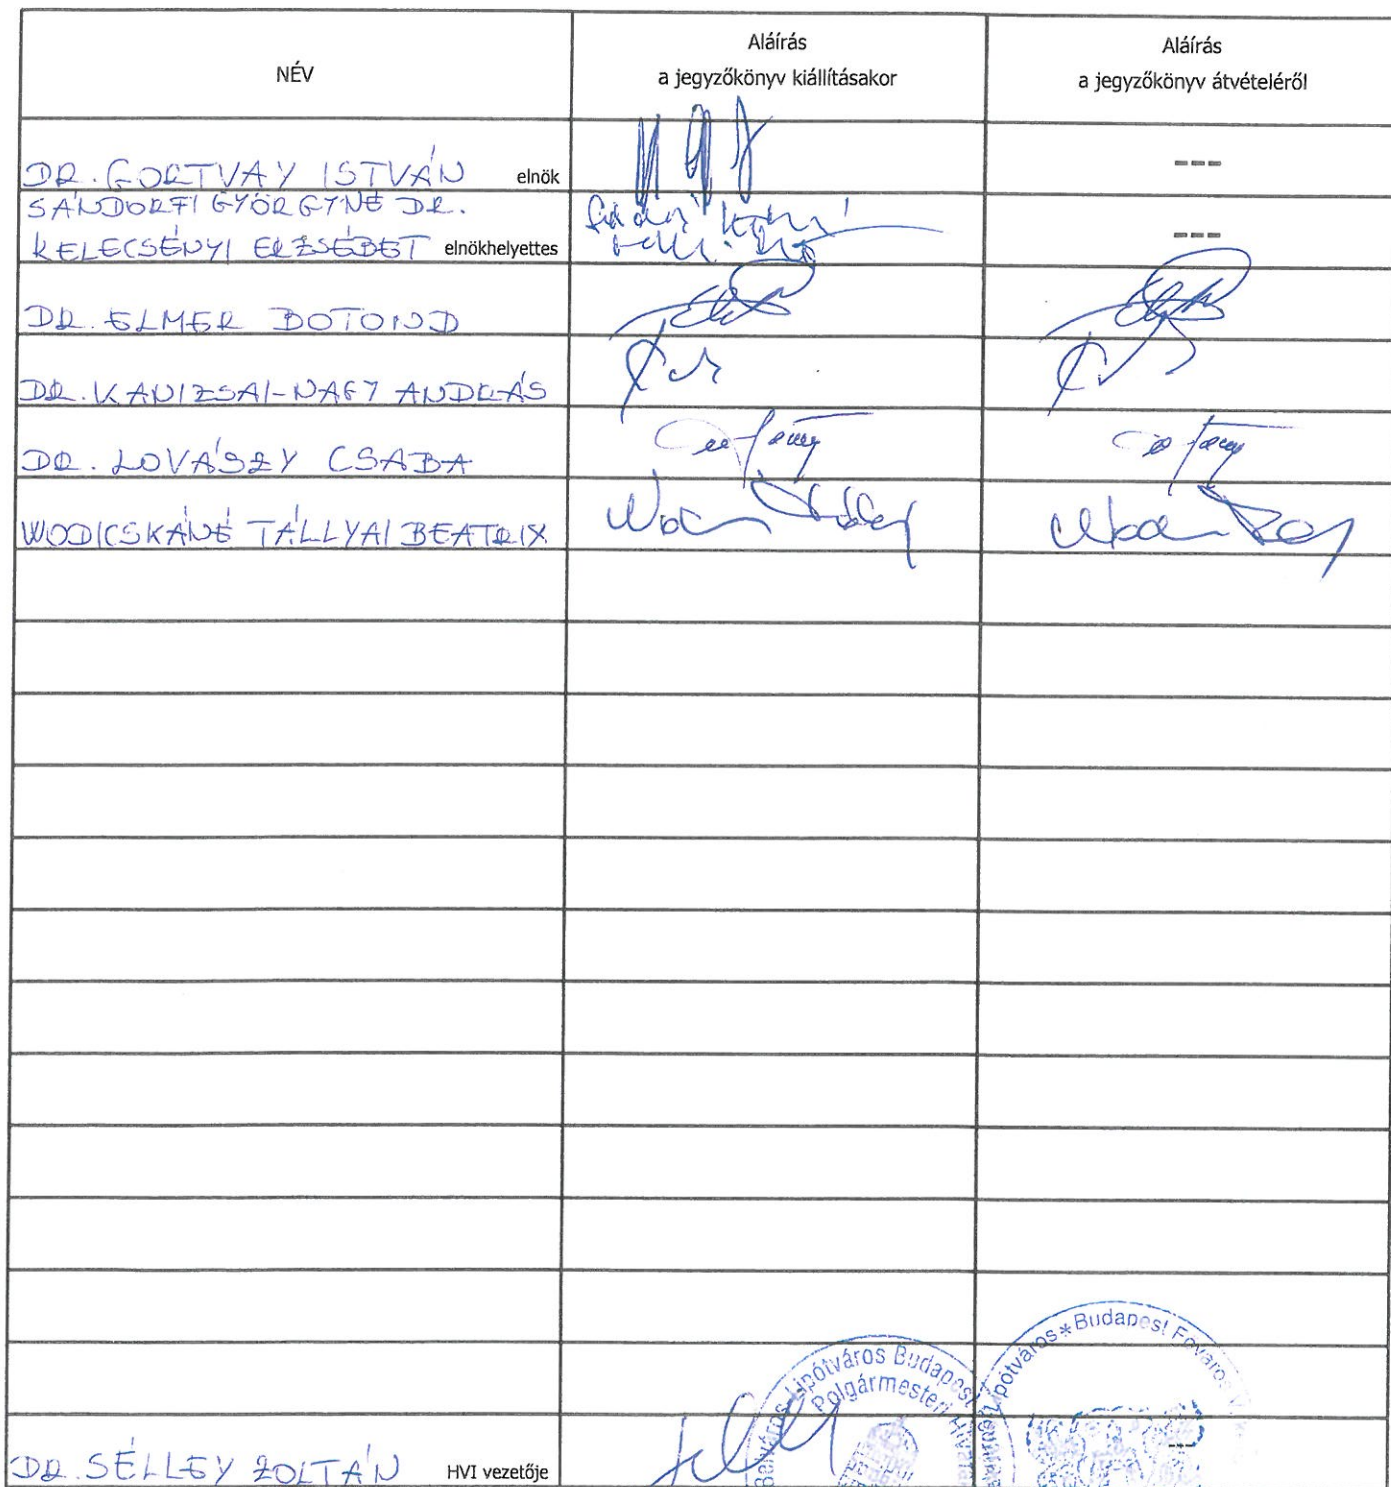 NÉV
Aláírás
a jegyzőkönyv kiállításakor
Aláírás
a jegyzőkönyv átvételéről
DR. GORTVAY ISTVÁN elnök
---
SÁNDORFI GYÖRGYNÉ DR.
KELECSÉNYI ERZSÉBET elnökhelyettes
---
DR. ELMER BOTOND
DR. KANIZSAI-NAGY ANDRÁS
DR. LOVÁSZY CSABA
WODICSKÁNÉ TÁLLYAI BEATRIX
DR. SÉLLEY ZOLTÁN HVI vezetője
Belváros-Lipótváros Budapest
Polgármesteri
Lipótváros * Budapest Főváros